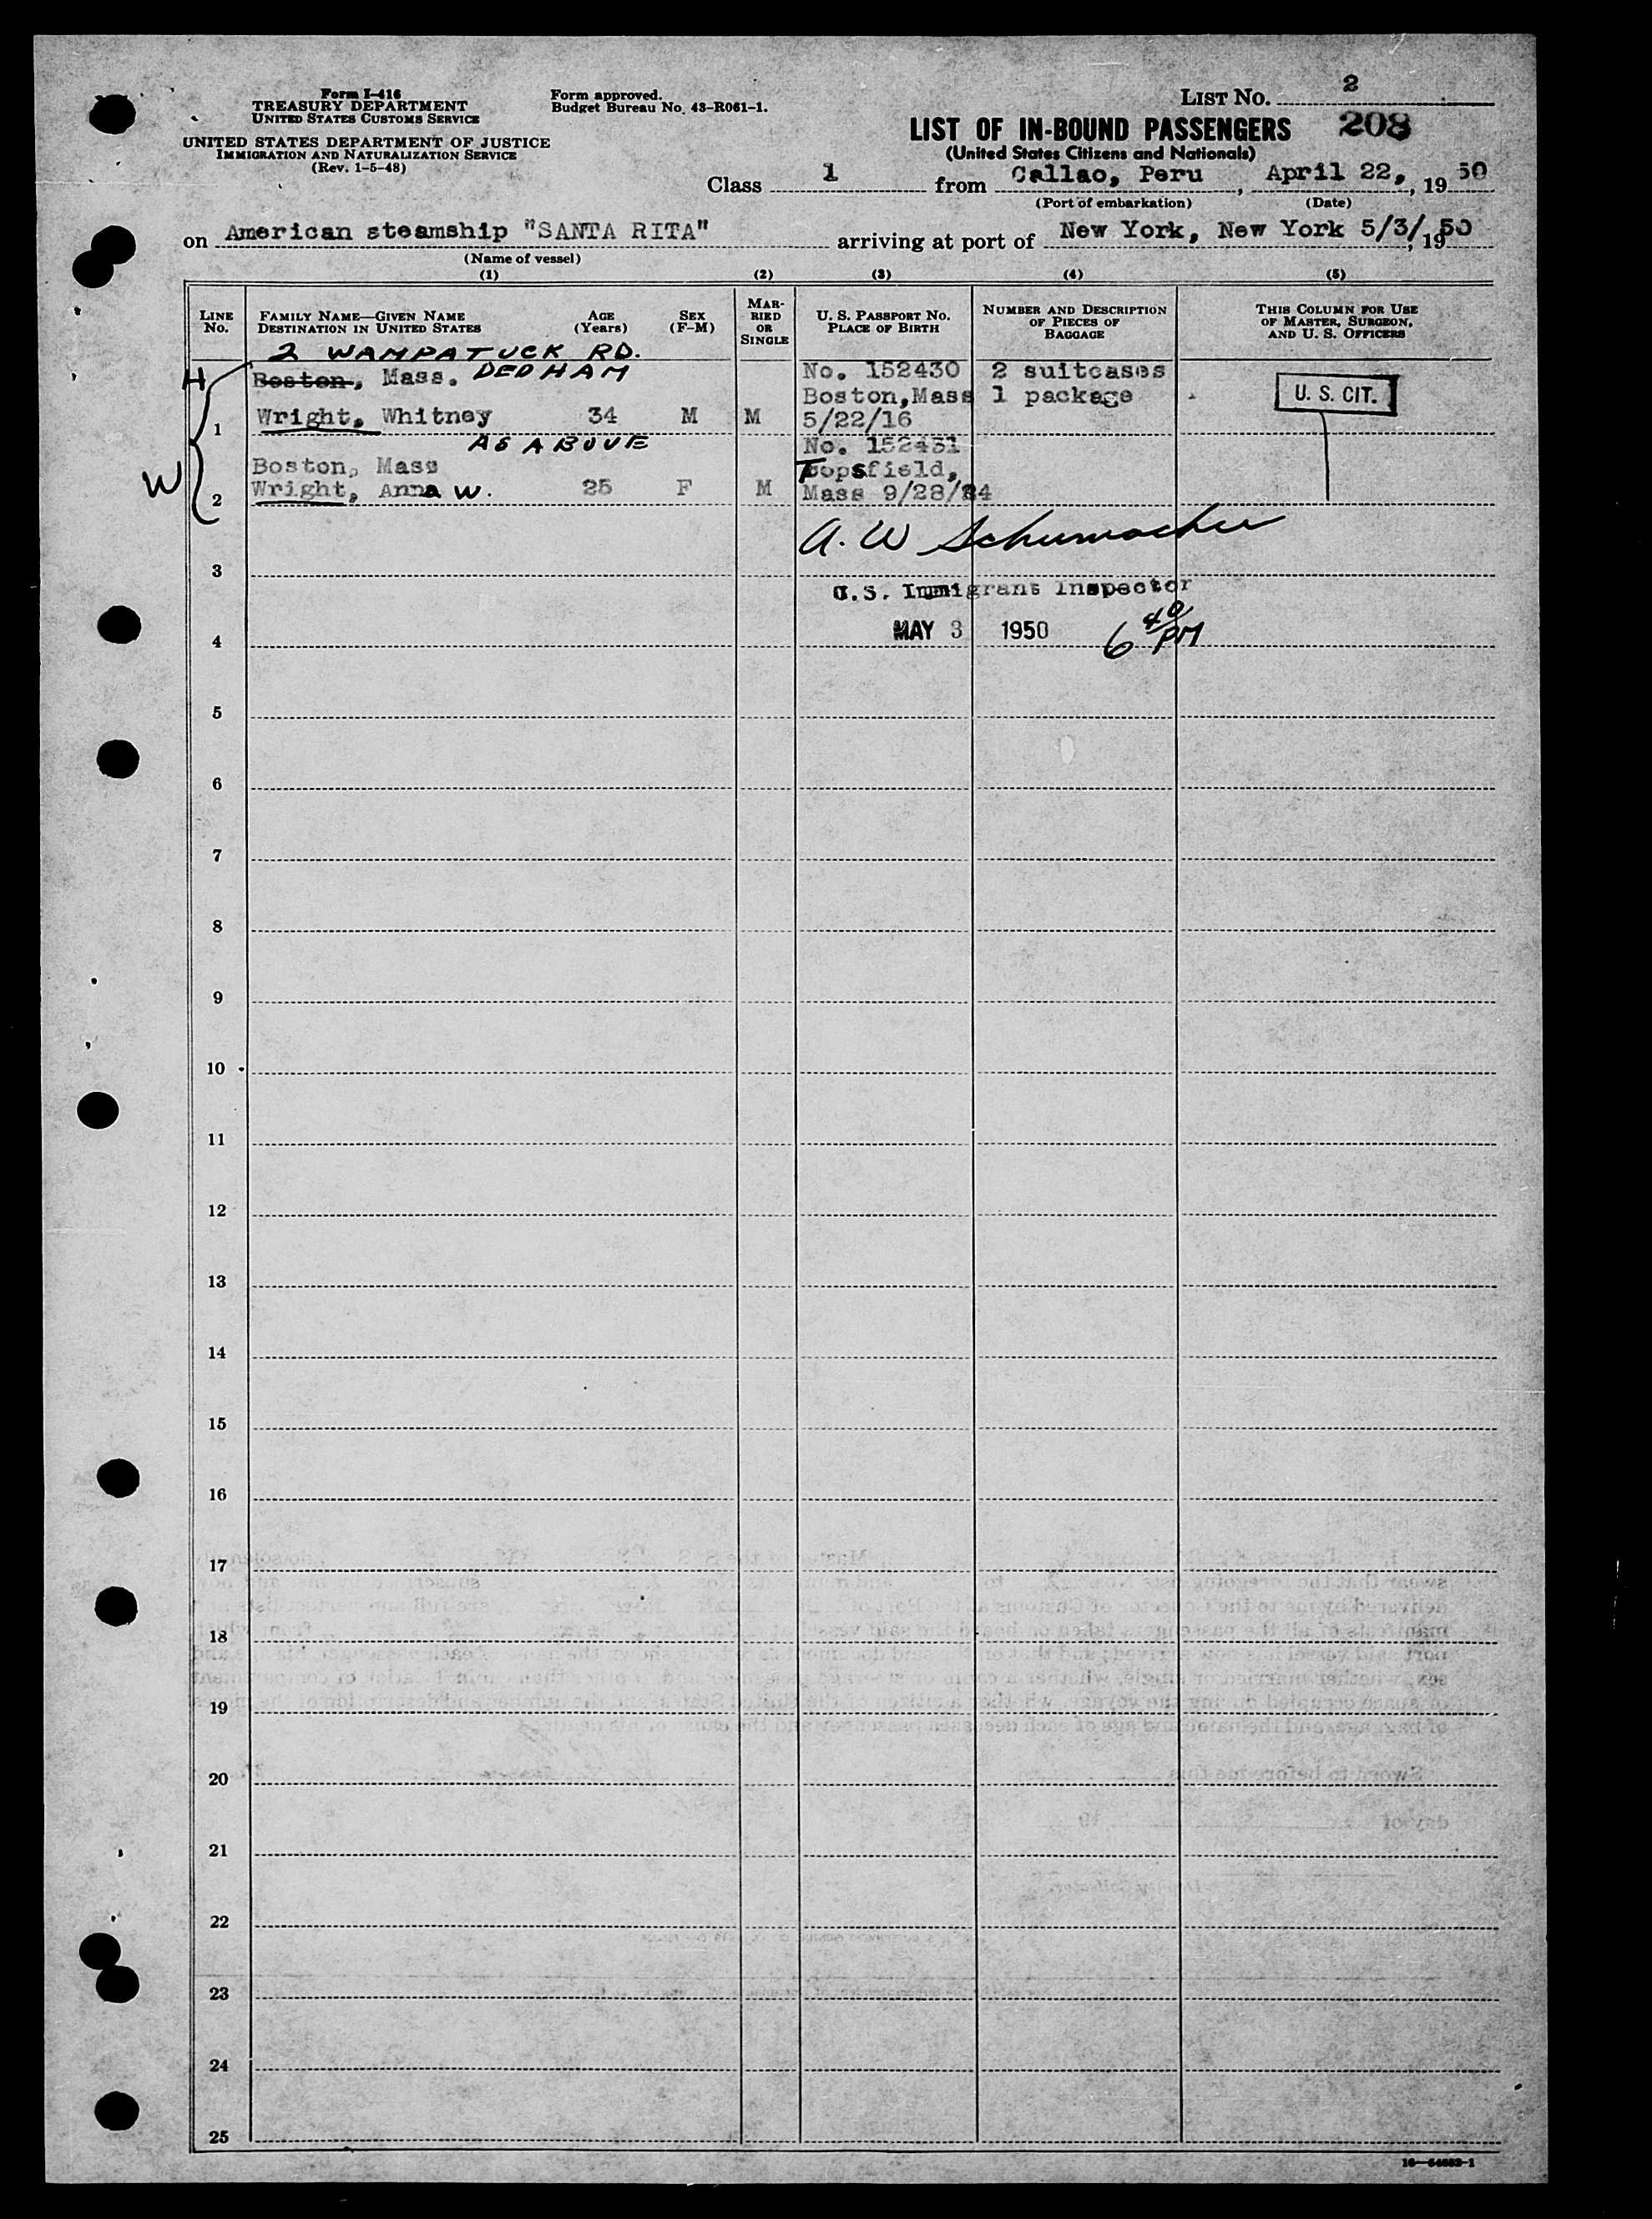 Form I-416
TREASURY DEPARTMENT
UNITED STATES CUSTOMS SERVICE
UNITED STATES DEPARTMENT OF JUSTICE
IMMIGRATION AND NATURALIZATION SERVICE
(Rev. 1-5-48)
Form approved.
Budget Bureau No. 43-R061-1.
LIST NO. 2
LIST OF IN-BOUND PASSENGERS 208
(United States Citizens and Nationals)
Class 1 from Callao, Peru, April 22, 19 50
(Port of embarkation) (Date)
on American steamship "SANTA RITA" arriving at port of New York, New York 5/3/, 1950
(Name of vessel)
(1) (2) (3) (4) (5)
LINE No. FAMILY NAME—GIVEN NAME DESTINATION IN UNITED STATES AGE (Years) SEX (F-M) MARRIED OR SINGLE U. S. PASSPORT NO. PLACE OF BIRTH NUMBER AND DESCRIPTION OF PIECES OF BAGGAGE THIS COLUMN FOR USE OF MASTER, SURGEON, AND U. S. OFFICERS
2 WAMPATUCK RD.
H Boston, Mass. DEDHAM No. 152430 2 suitcases U. S. CIT.
Boston, Mass 1 package
1 Wright, Whitney 34 M M 5/22/16
AS ABOVE No. 152431
W Boston, Mass Topsfield,
2 Wright, Anna W. 25 F M Mass 9/28/24
A. W Schumacher
3
U.S. Immigrant Inspector
4 MAY 3 1950 6 40 PM
5
6
7
8
9
10
11
12
13
14
15
16
17
18
19
20
21
22
23
24
25